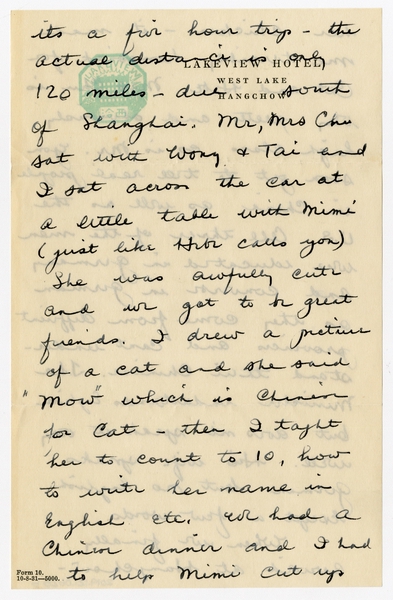 its a five hour trip - the
actual distance is only
LAKEVIEW HOTEL
WEST LAKE
HANGCHOW
120 miles - due south
of Shanghai. Mr, Mrs Chu
sat with Wong & Tai and
I sat across the car at
a little table with Mimi
(just like Herb calls you)
She was awfully cute
and we got to be great
friends. I drew a picture
of a cat and she said
"Mow" which is Chinese
for Cat - then I taght
her to count to 10, how
to write her name in
English etc. We had a
Chinese dinner and I had
to help Mimi cut up
Form 10.
10-8-31-5000.